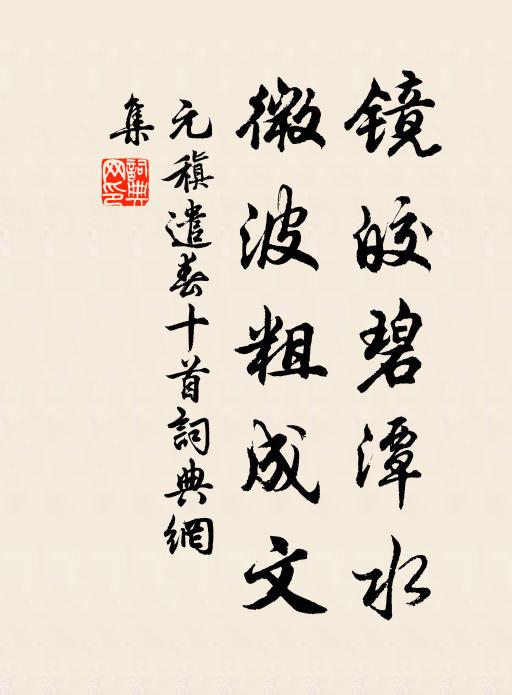 镜皎碧潭水
微波粗成文
元稹遣春十首詞典網
集
詞典网印